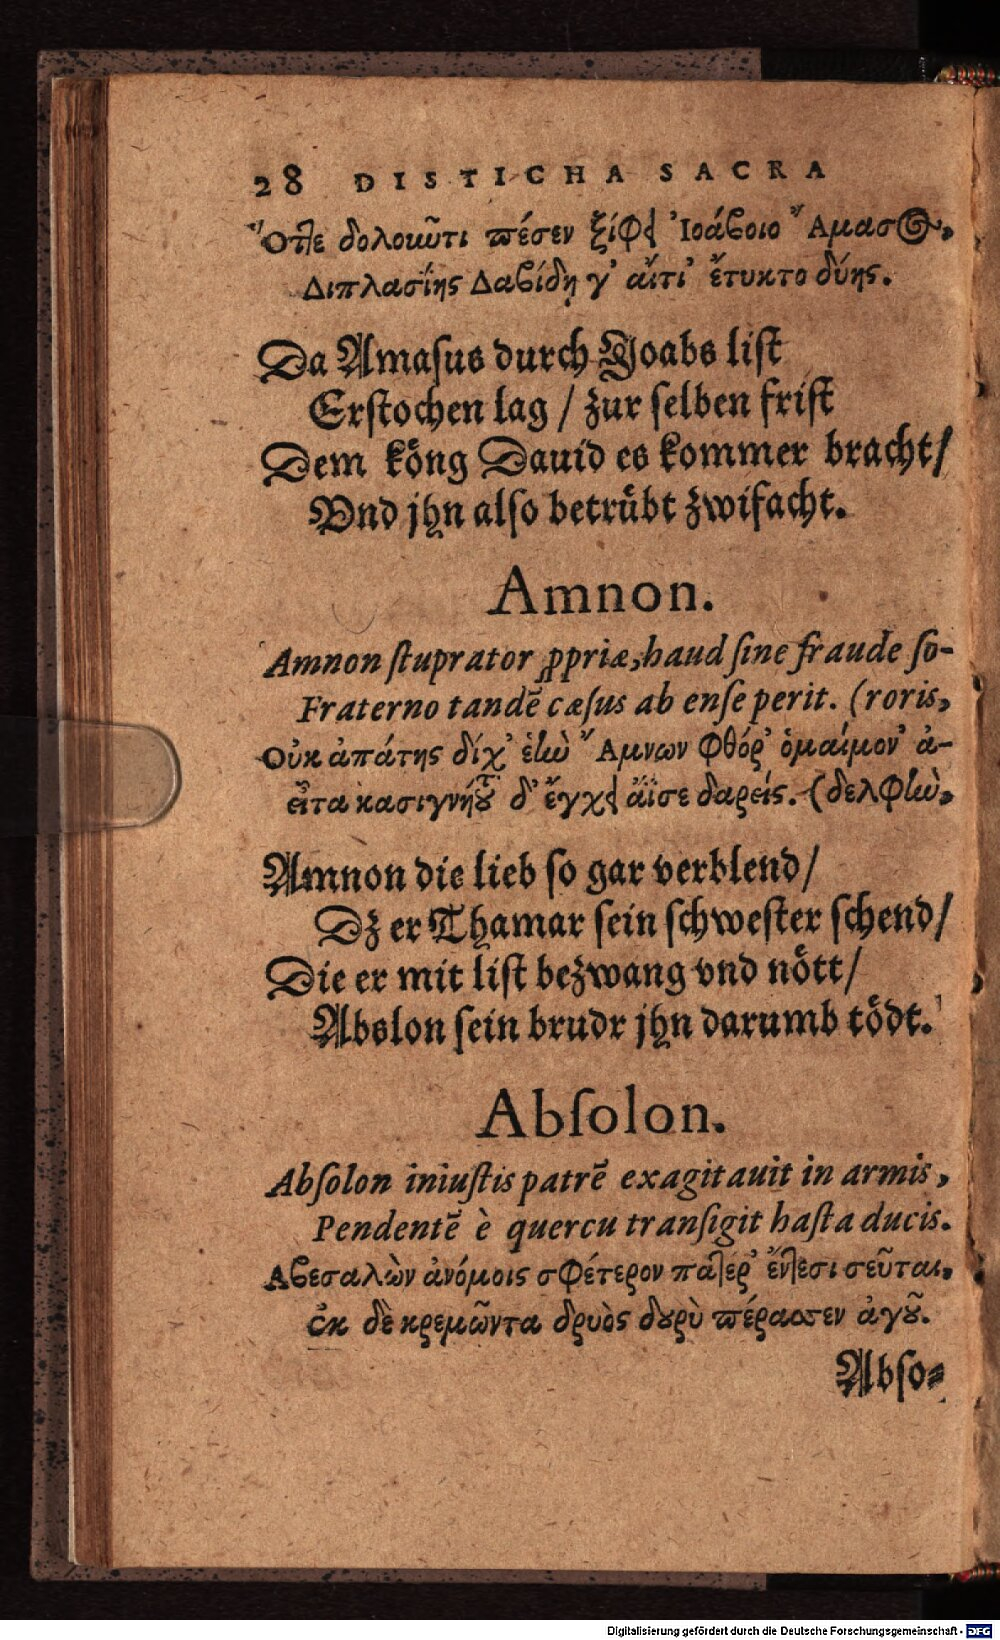 28 DISTICHA SACRA
Ὅτε δολοκῦτι πέσεν ξίφει Ἰοάβοιο Ἄμασος,
Διπλασίης Δαβίδη γ' αἴτι' ἔτυκτο δύης.
Da Amasus durch Joabs list
Erstochen lag / zur selben frist
Dem köng Dauid es kommer bracht/
Vnd jhn also betrübt zwifacht.
Amnon.
Amnon stuprator ꝓpriæ, haud sine fraude so-
Fraterno tandẽ cæsus ab ense perit. (roris,
Οὐκ ἀπάτης δίχ' ἑὼ Ἄμνων φθόρ' ὁμαίμον' ἀ-
εἶτα κασιγνήτου δ' ἔγχει ἄϊσε δαρείς. (δελφὼ,
Amnon die lieb so gar verblend/
Dz er Thamar sein schwester schend/
Die er mit list bezwang vnd nött/
Abslon sein brudr jhn darumb tödt.
Absolon.
Absolon iniustis patrẽ exagitauit in armis,
Pendentẽ è quercu transigit hasta ducis.
Αβεσαλὼν ἀνόμοις σφέτερον πατέρ' ἔντεσι σεῦται,
ἐκ δὲ κρεμῶντα δρυὸς δουρὺ πέρασσεν ἀγοῦ.
Abso-
Digitalisierung gefördert durch die Deutsche Forschungsgemeinschaft - DFG